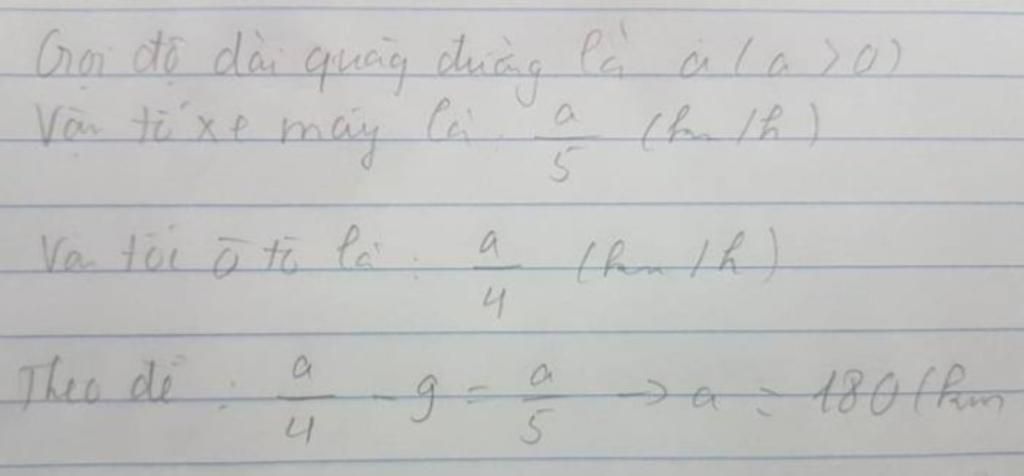 Gọi độ dài quãng đường là a (a > 0)
Vận tố xe máy là a/5 (km/h)
Va tối ô tô là : a/4 (km/h)
Theo đề : a/4 - 9 = a/5 → a = 180 (km